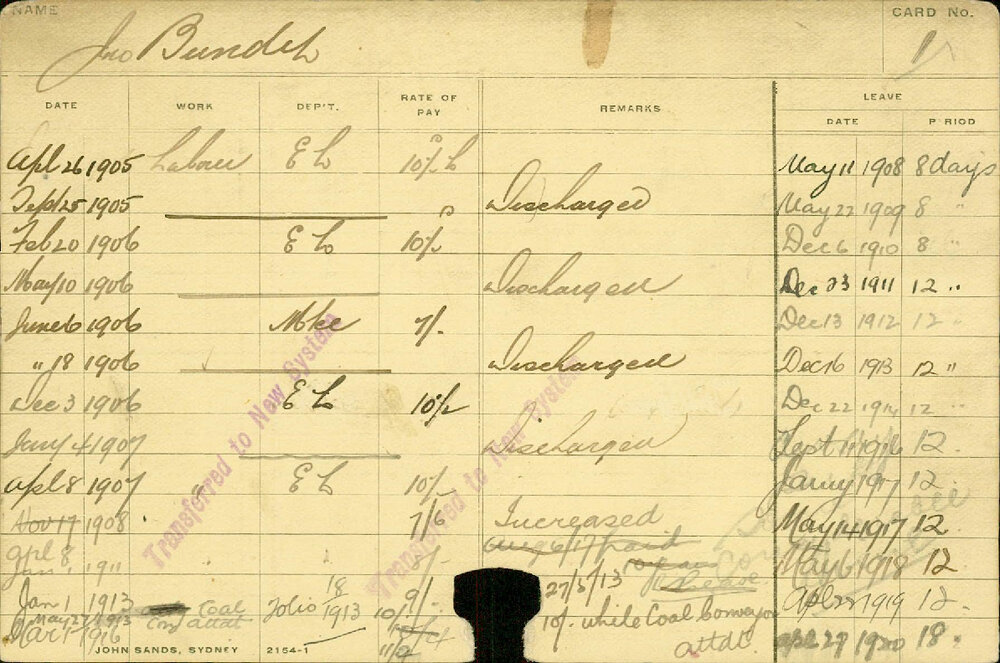 NAME CARD No.
Jno Bundet 1
DATE WORK DEP'T. RATE OF PAY REMARKS LEAVE
DATE PERIOD
Apl 26 1905 Labour E L May 11 1908 8 days
Sept 25 1905 Discharged May 22 1909 8 "
Feb 20 1906 E L 10/2 Dec 6 1910 8 "
May 10 1906 Discharged Dec 23 1911 12 "
June 6 1906 Mke 7/- Dec 13 1912 12 "
" 18 1906 Discharged Dec 16 1913 12 "
Dec 3 1906 E L 10/2 Dec 22 1914 12 "
Jany 4 1907 Discharged Sept 1916 12 "
Apl 8 1907 E L 10/- Jany 1917 12 "
Nov 17 1908 7/6 Increased May 14 1917 12
Apl 8 Aug 6/17 Paid May 6 1918 12
Jan 1 1911 27/3/13 Please
Jan 1 1913 Coal Folio 18 1913 9/- 10/- while Coal Conveyor attdt. Apl 1919 12
May 27 1913 Con attdt
Mar 1 1916 Apl 27 1920 18
Transferred to New System
Transferred to New System
JOHN SANDS, SYDNEY 2154-1